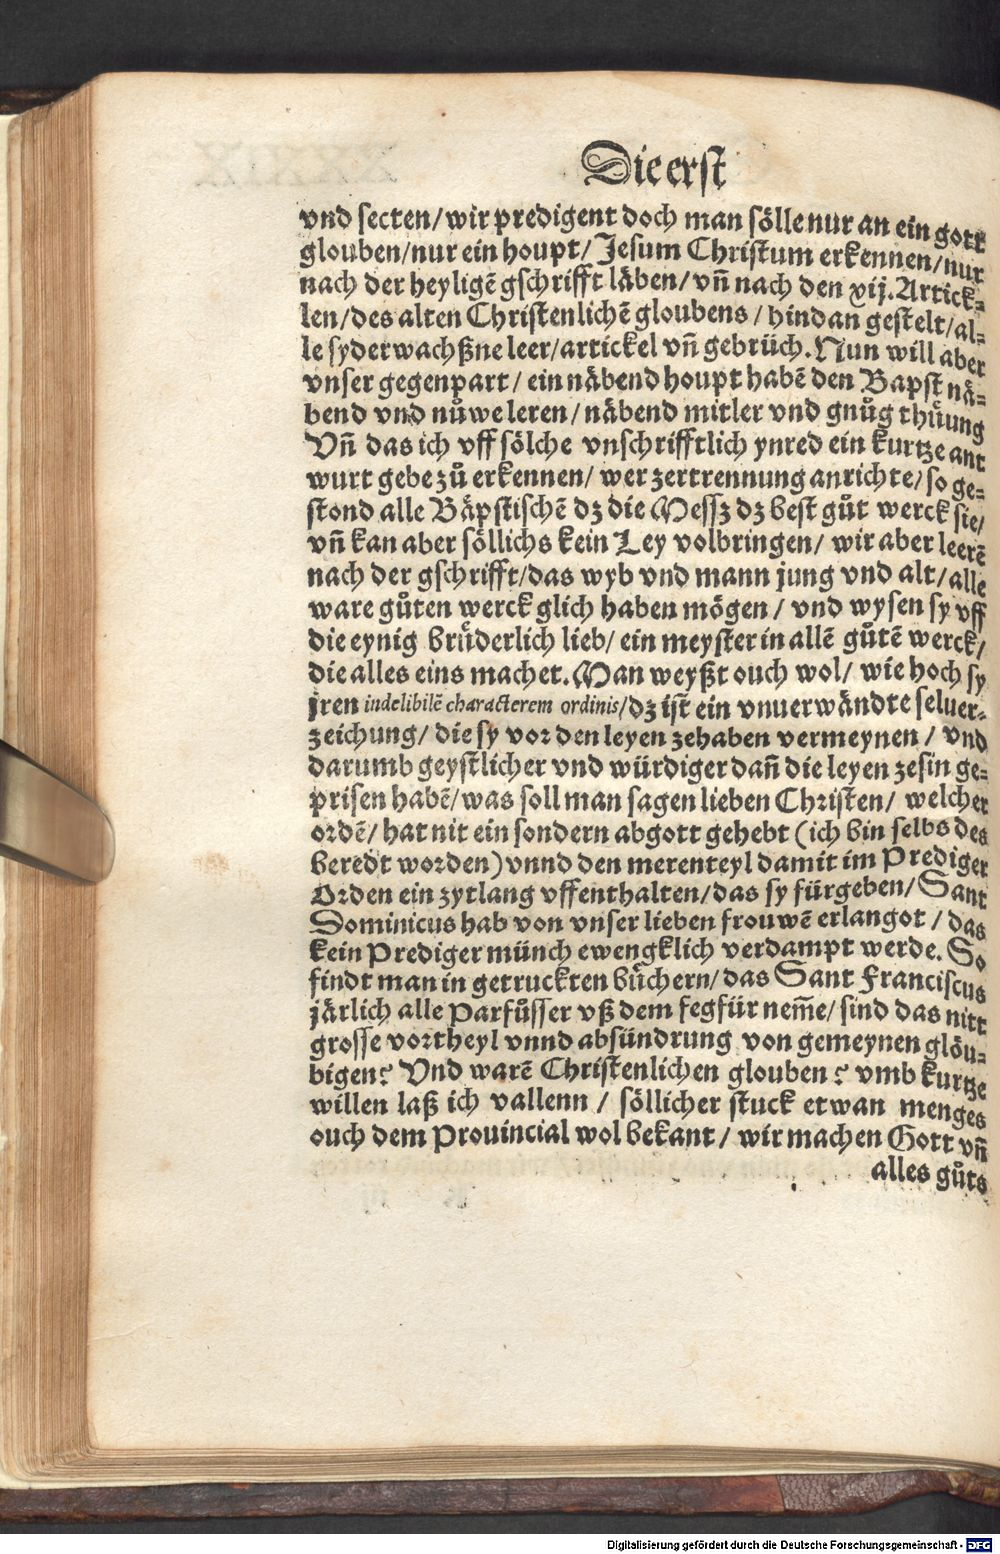 Die erst
vnd secten/wir predigent doch man sölle nur an ein gott
glouben/nur ein houpt/Jesum Christum erkennen/nur
nach der heyligẽ gschrifft läben/vñ nach den xij. Artick⸗
len/des alten Christenlichẽ gloubens/hindan gestelt/al⸗
le syderwachßne leer/artickel vñ gebrüch. Nun will aber
vnser gegenpart/ein näbend houpt habẽ den Bapst nä⸗
bend vnd nůwe leren/näbend mitler vnd gnůg thüung
Vñ das ich vff sölche vnschrifftlich ynred ein kurtze ant
wurt gebe zů erkennen/wer zertrennung anrichte/so ge⸗
stond alle Bäpstischẽ dz die Messz dz best gůt werck sie/
vñ kan aber söllichs kein Ley volbringen/wir aber leerẽ
nach der gschrifft/das wyb vnd mann jung vnd alt/alle
ware gůten werck glich haben mögen/vnd wysen sy vff
die eynig brüderlich lieb/ein meyster in allẽ gůtẽ werck/
die alles eins machet. Man weyßt ouch wol/wie hoch sy
jren indelibilẽ characterem ordinis/dz ist ein vnuerwändte seluer⸗
zeichung/die sy vor den leyen zehaben vermeynen/vnd
darumb geystlicher vnd würdiger dañ die leyen zesin ge⸗
prisen habẽ/was soll man sagen lieben Christen/welcher
ordẽ/hat nit ein sondern abgott gehebt (ich bin selbs des
beredt worden) vnnd den merenteyl damit im Prediger
Orden ein zytlang vffenthalten/das sy fürgeben/Sant
Dominicus hab von vnser lieben frouwẽ erlangot/das
kein Prediger münch ewengklich verdampt werde. So
findt man in getruckten büchern/das Sant Franciscus
järlich alle Parfůsser vß dem fegfür nem̃e/sind das nitt
grosse vortheyl vnnd absündrung von gemeynen glöu⸗
bigen? Vnd warẽ Christenlichen glouben? vmb kurtze
willen laß ich vallenn/söllicher stuck etwan menges
ouch dem Prouincial wol bekant/wir machen Gott vñ
alles gůts
Digitalisierung gefördert durch die Deutsche Forschungsgemeinschaft - DFG